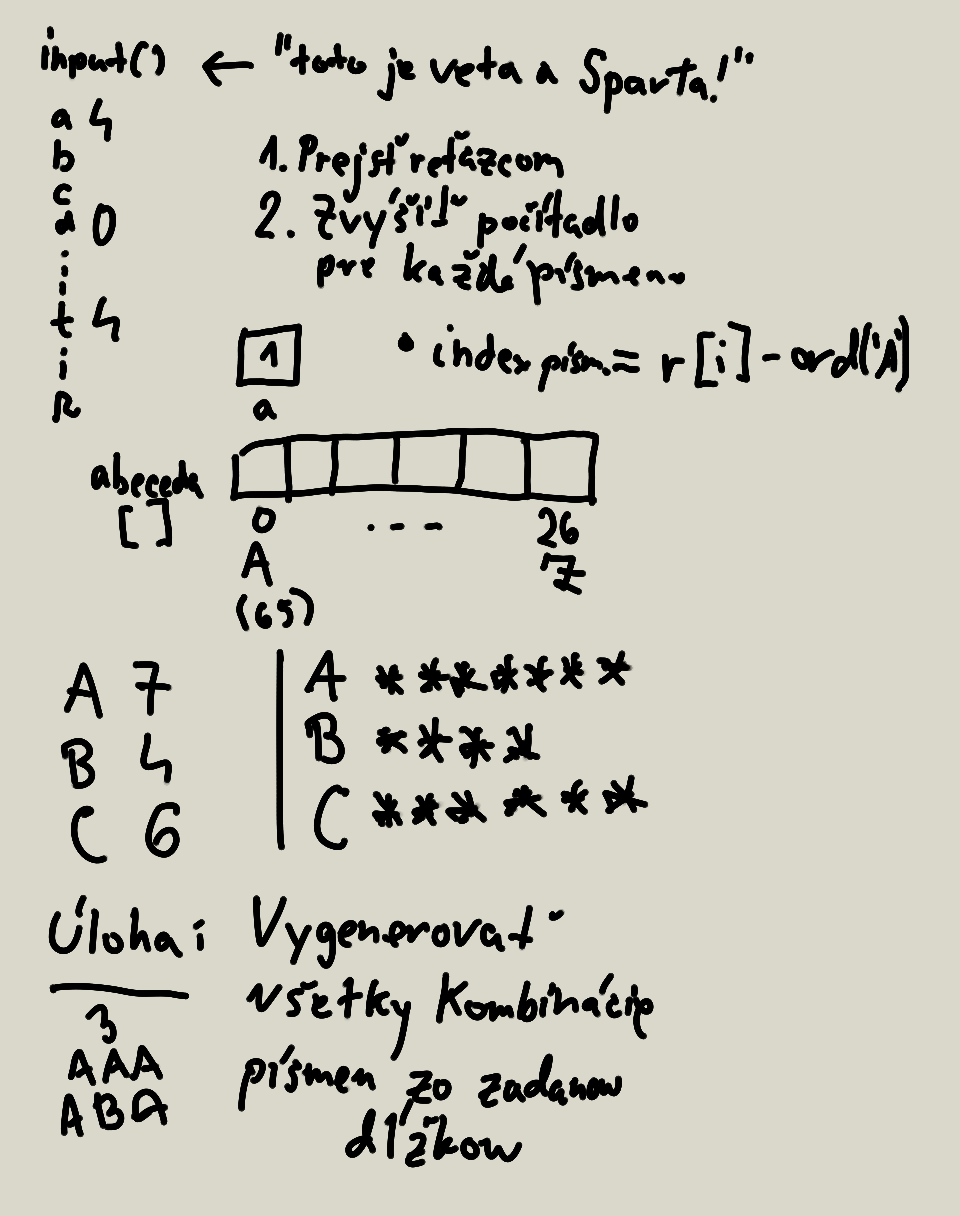 input() ← "toto je veta a Sparta!"
a 4
b
c
d 0
t 4
i
1. Prejsť reťazcom
2. Zvýšiť počítadlo
pre každé písmeno
1
a
• index písm. = r[i] - ord('A')
abeceda
[]
0 . - - 26
A Z
(65)
A 7
B 4
C 6
A *******
B ****
C ******
Úloha: Vygenerovať
všetky kombinácie
písmen zo zadanou
dĺžkou
3
AAA
ABA